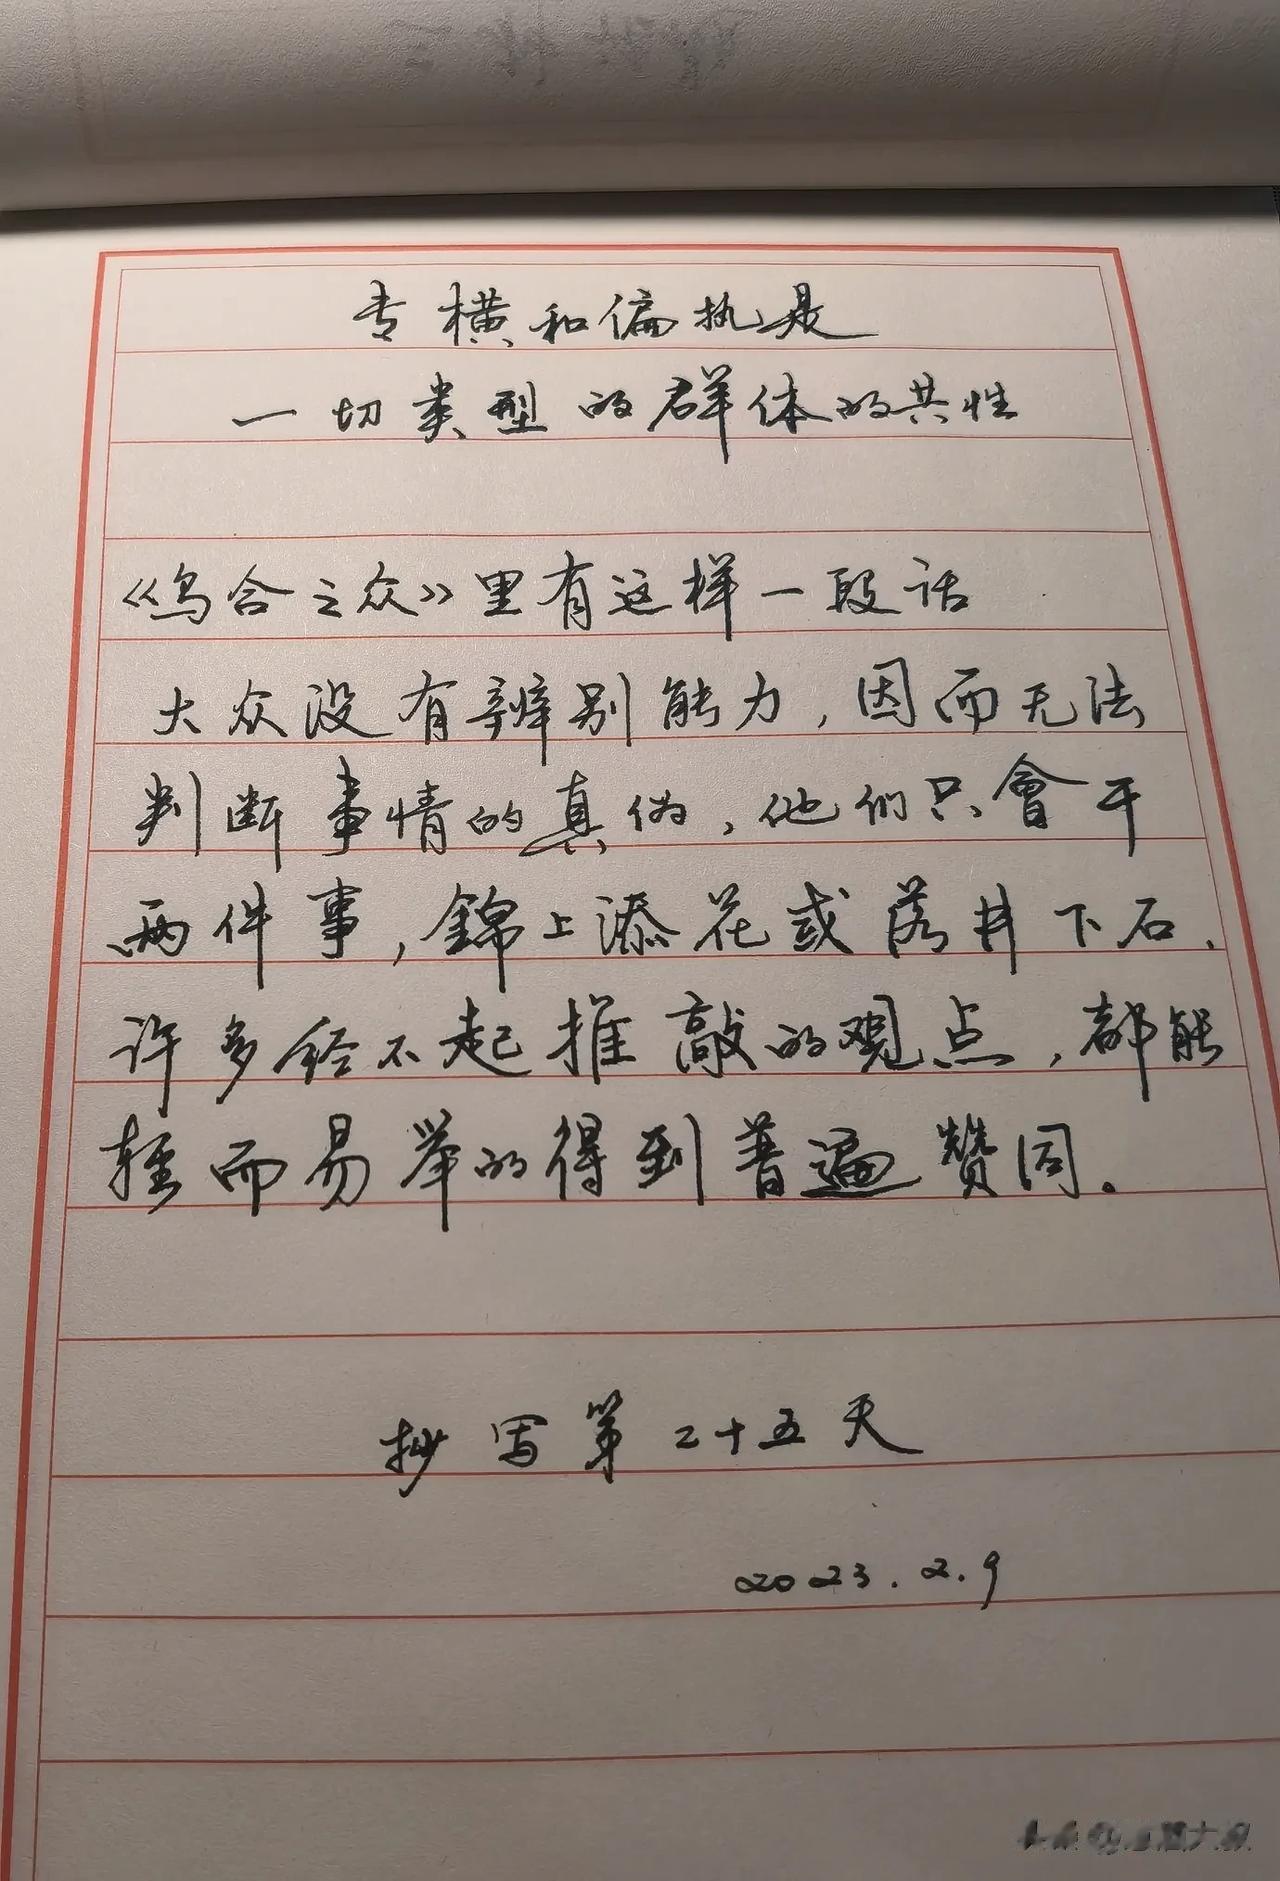 专横和偏执是
一切类型的群体的共性
《乌合之众》里有这样一段话
大众没有辨别能力，因而无法
判断事情的真伪，他们只會干
两件事，錦上添花或落井下石．
许多经不起推敲的观点，都能
轻而易举的得到普遍赞同。
抄写第二十五天
2023.2.9